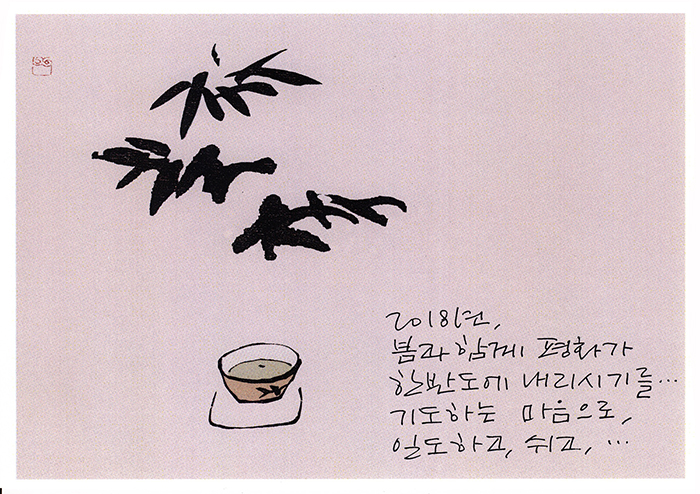 2018년,
봄과 함께 평화가
한반도에 내리시기를...
기도하는 마음으로,
일도하고, 쉬고, ...